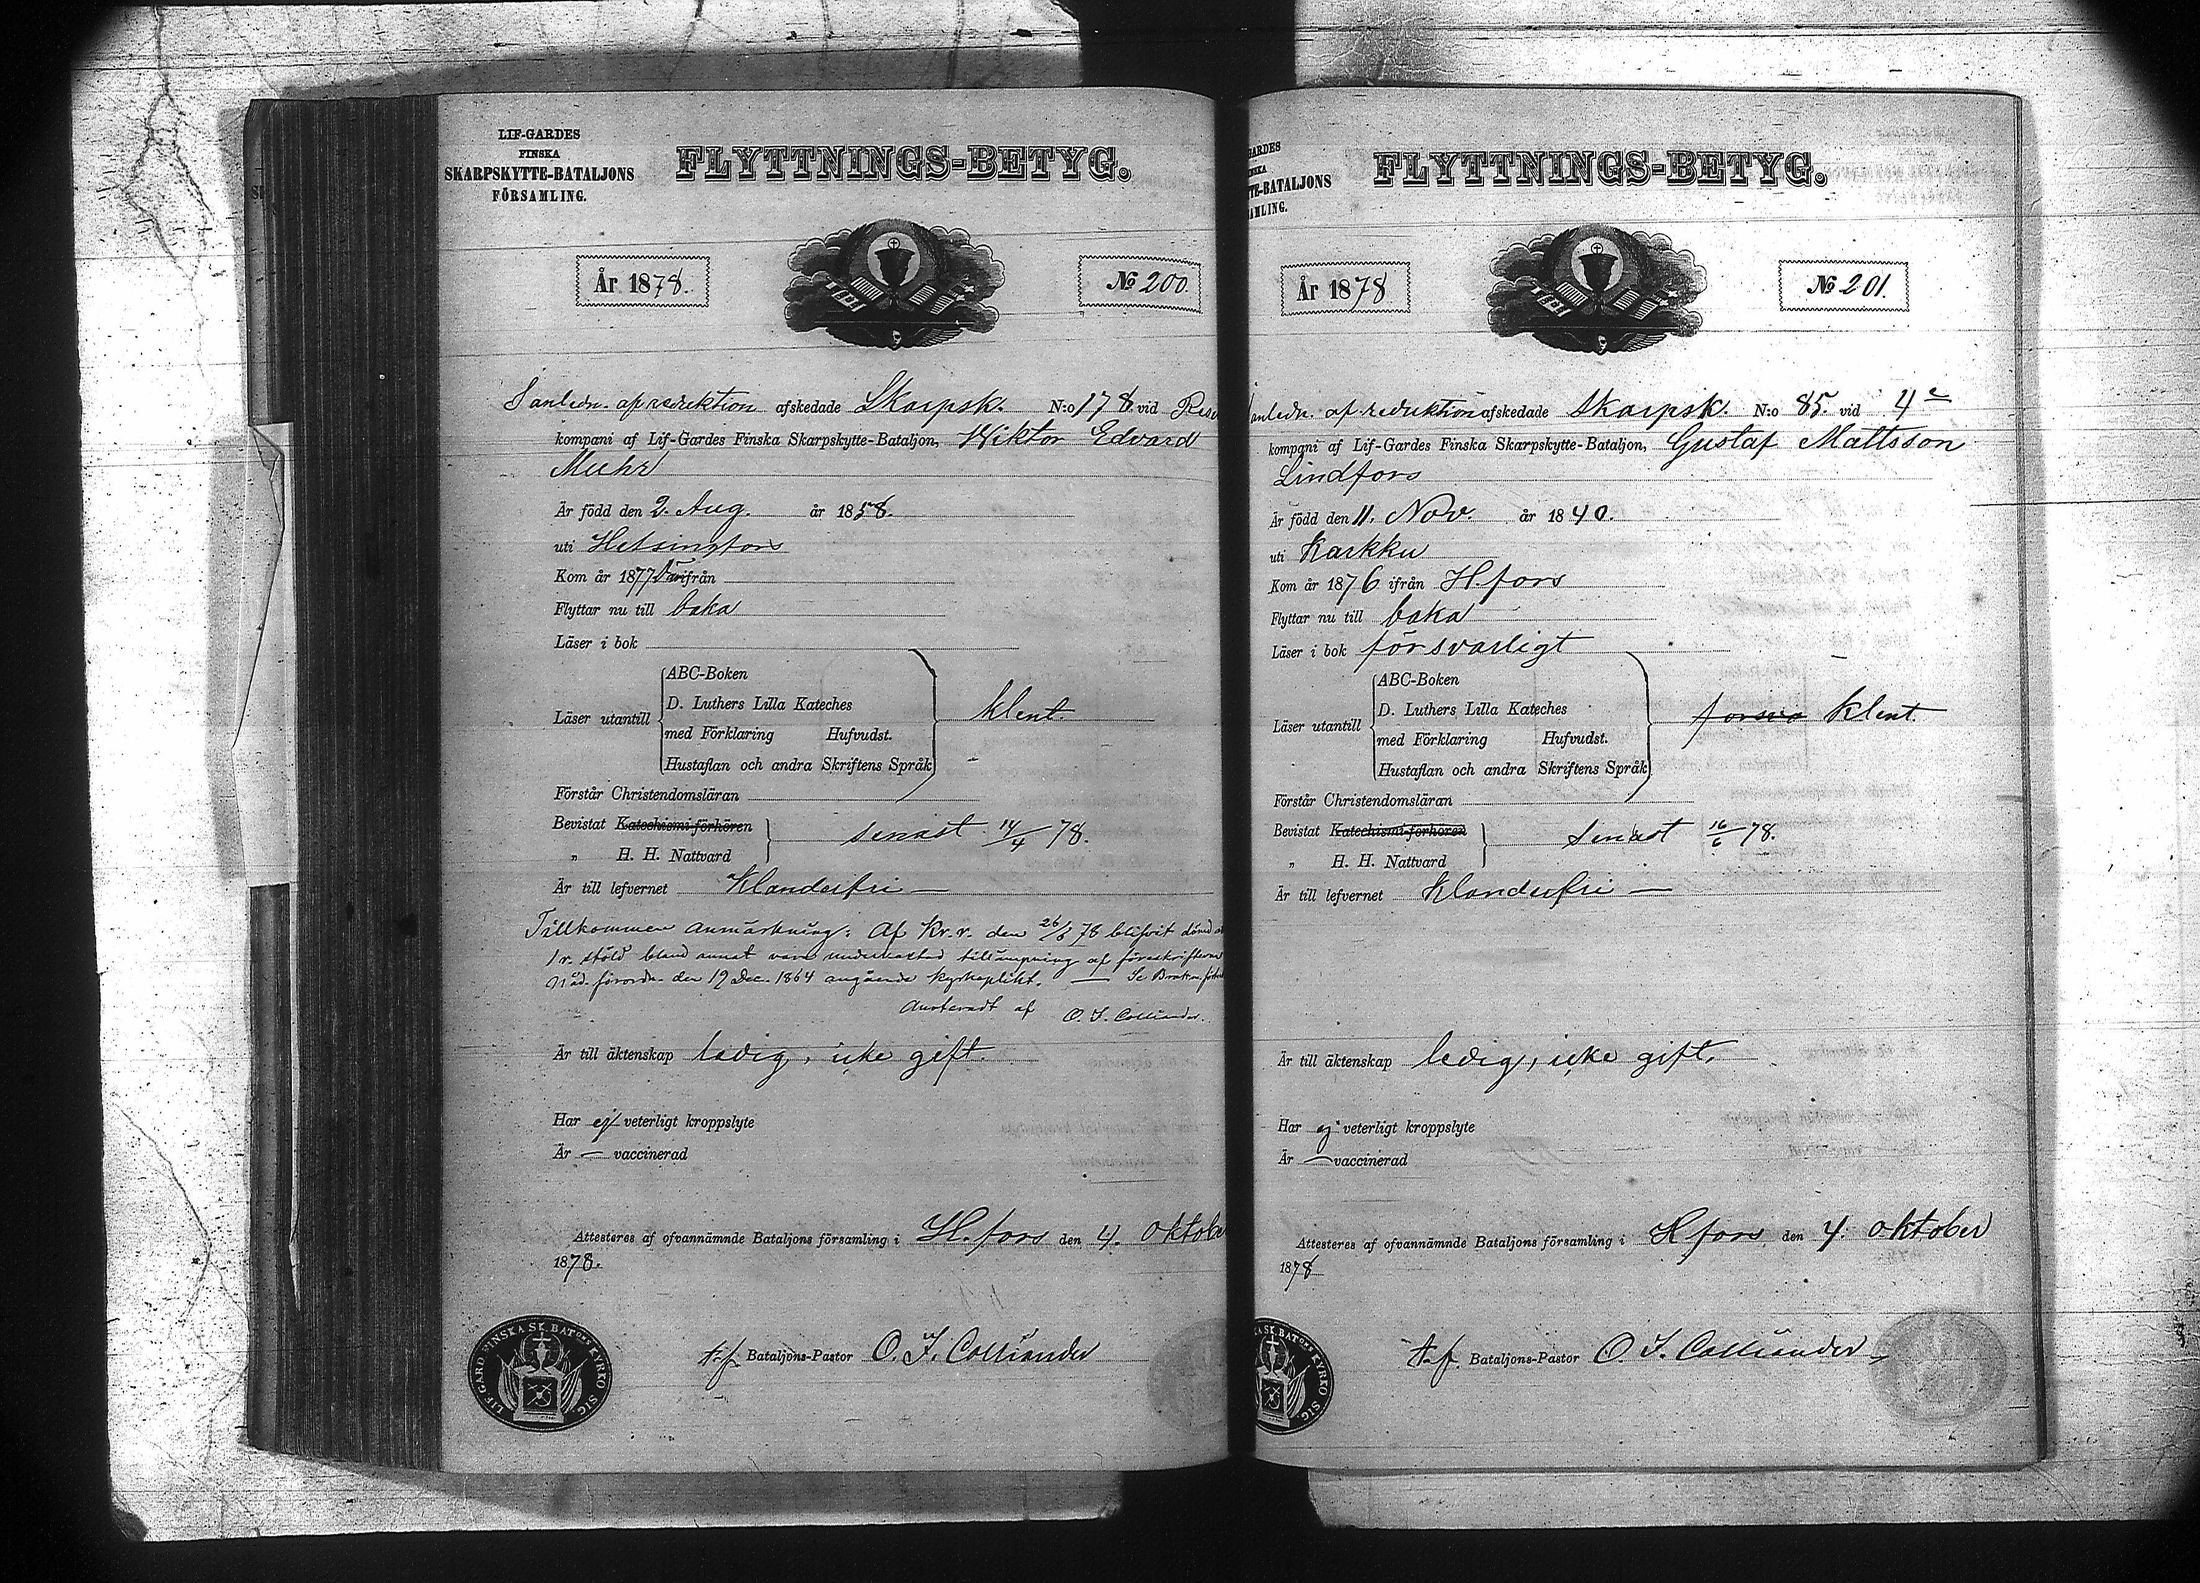 LIF-GARDES
FINSKA
SKARPSKYTTE-BATALJONS
FÖRSAMLING.
FLYTTNINGS-BETYG.
År 1878.
No 200.
I anledn. af reduktion afskedade Skarpsk. N:o 178 vid Rese
kompani af Lif-Gardes Finska Skarpskytte-Bataljon, Wiktor Edvard
Muhr
Är född den 2. Aug. år 1858.
uti Helsingfors
Kom år 1877 ifrån
Flyttar nu till baka
Läser i bok
Läser utantill
ABC-Boken
D. Luthers Lilla Kateches
med Förklaring Hufvudst.
Hustaflan och andra Skriftens Språk
klent.
Förstår Christendomsläran
Bevistat Katechismi-förhören
„ H. H. Nattvard
senast 14/4 78.
Är till lefvernet Klanderfri —
Tillkommer anmärkning: Af Kr. r. den 26/8 78 blifvit dömd
1 r. stöld bland annat vara underkastad tillämpning af föreskrifterna
Nåd. förordn. den 19 Dec. 1864 angående kyrkoplikt. —
O. I. Colliander.
Är till äktenskap ledig, icke gift.
Har ej veterligt kroppslyte
Är — vaccinerad
Attesteres af ofvannämnde Bataljons församling i H.fors den 4. Oktober
1878.
t.f. Bataljons-Pastor O. I. Colliander
LIF.GARD FINSKA SK.BATONS KYRKO SIG.
GARDES
NSKA
TTE-BATALJONS
AMLING.
FLYTTNINGS-BETYG.
År 1878
No 201.
I anledn. af reduktion afskedade Skarpsk. N:o 85. vid 4e
kompani af Lif-Gardes Finska Skarpskytte-Bataljon, Gustaf Mattsson
Lindfors
Är född den 11. Nov. år 1840.
uti Karkku
Kom år 1876 ifrån H.fors
Flyttar nu till baka
Läser i bok försvarligt
Läser utantill
ABC-Boken
D. Luthers Lilla Kateches
med Förklaring Hufvudst.
Hustaflan och andra Skriftens Språk
försva klent.
Förstår Christendomsläran
Bevistat Katechismi-förhören
„ H. H. Nattvard
senast 16/6 78.
Är till lefvernet Klanderfri —
Är till äktenskap ledig, icke gift.
Har ej veterligt kroppslyte
Är — vaccinerad
Attesteres af ofvannämnde Bataljons församling i H.fors den 4. Oktober
1878
t.f. Bataljons-Pastor O. I. Colliander
KA SK.BATONS KYRKO SIG.